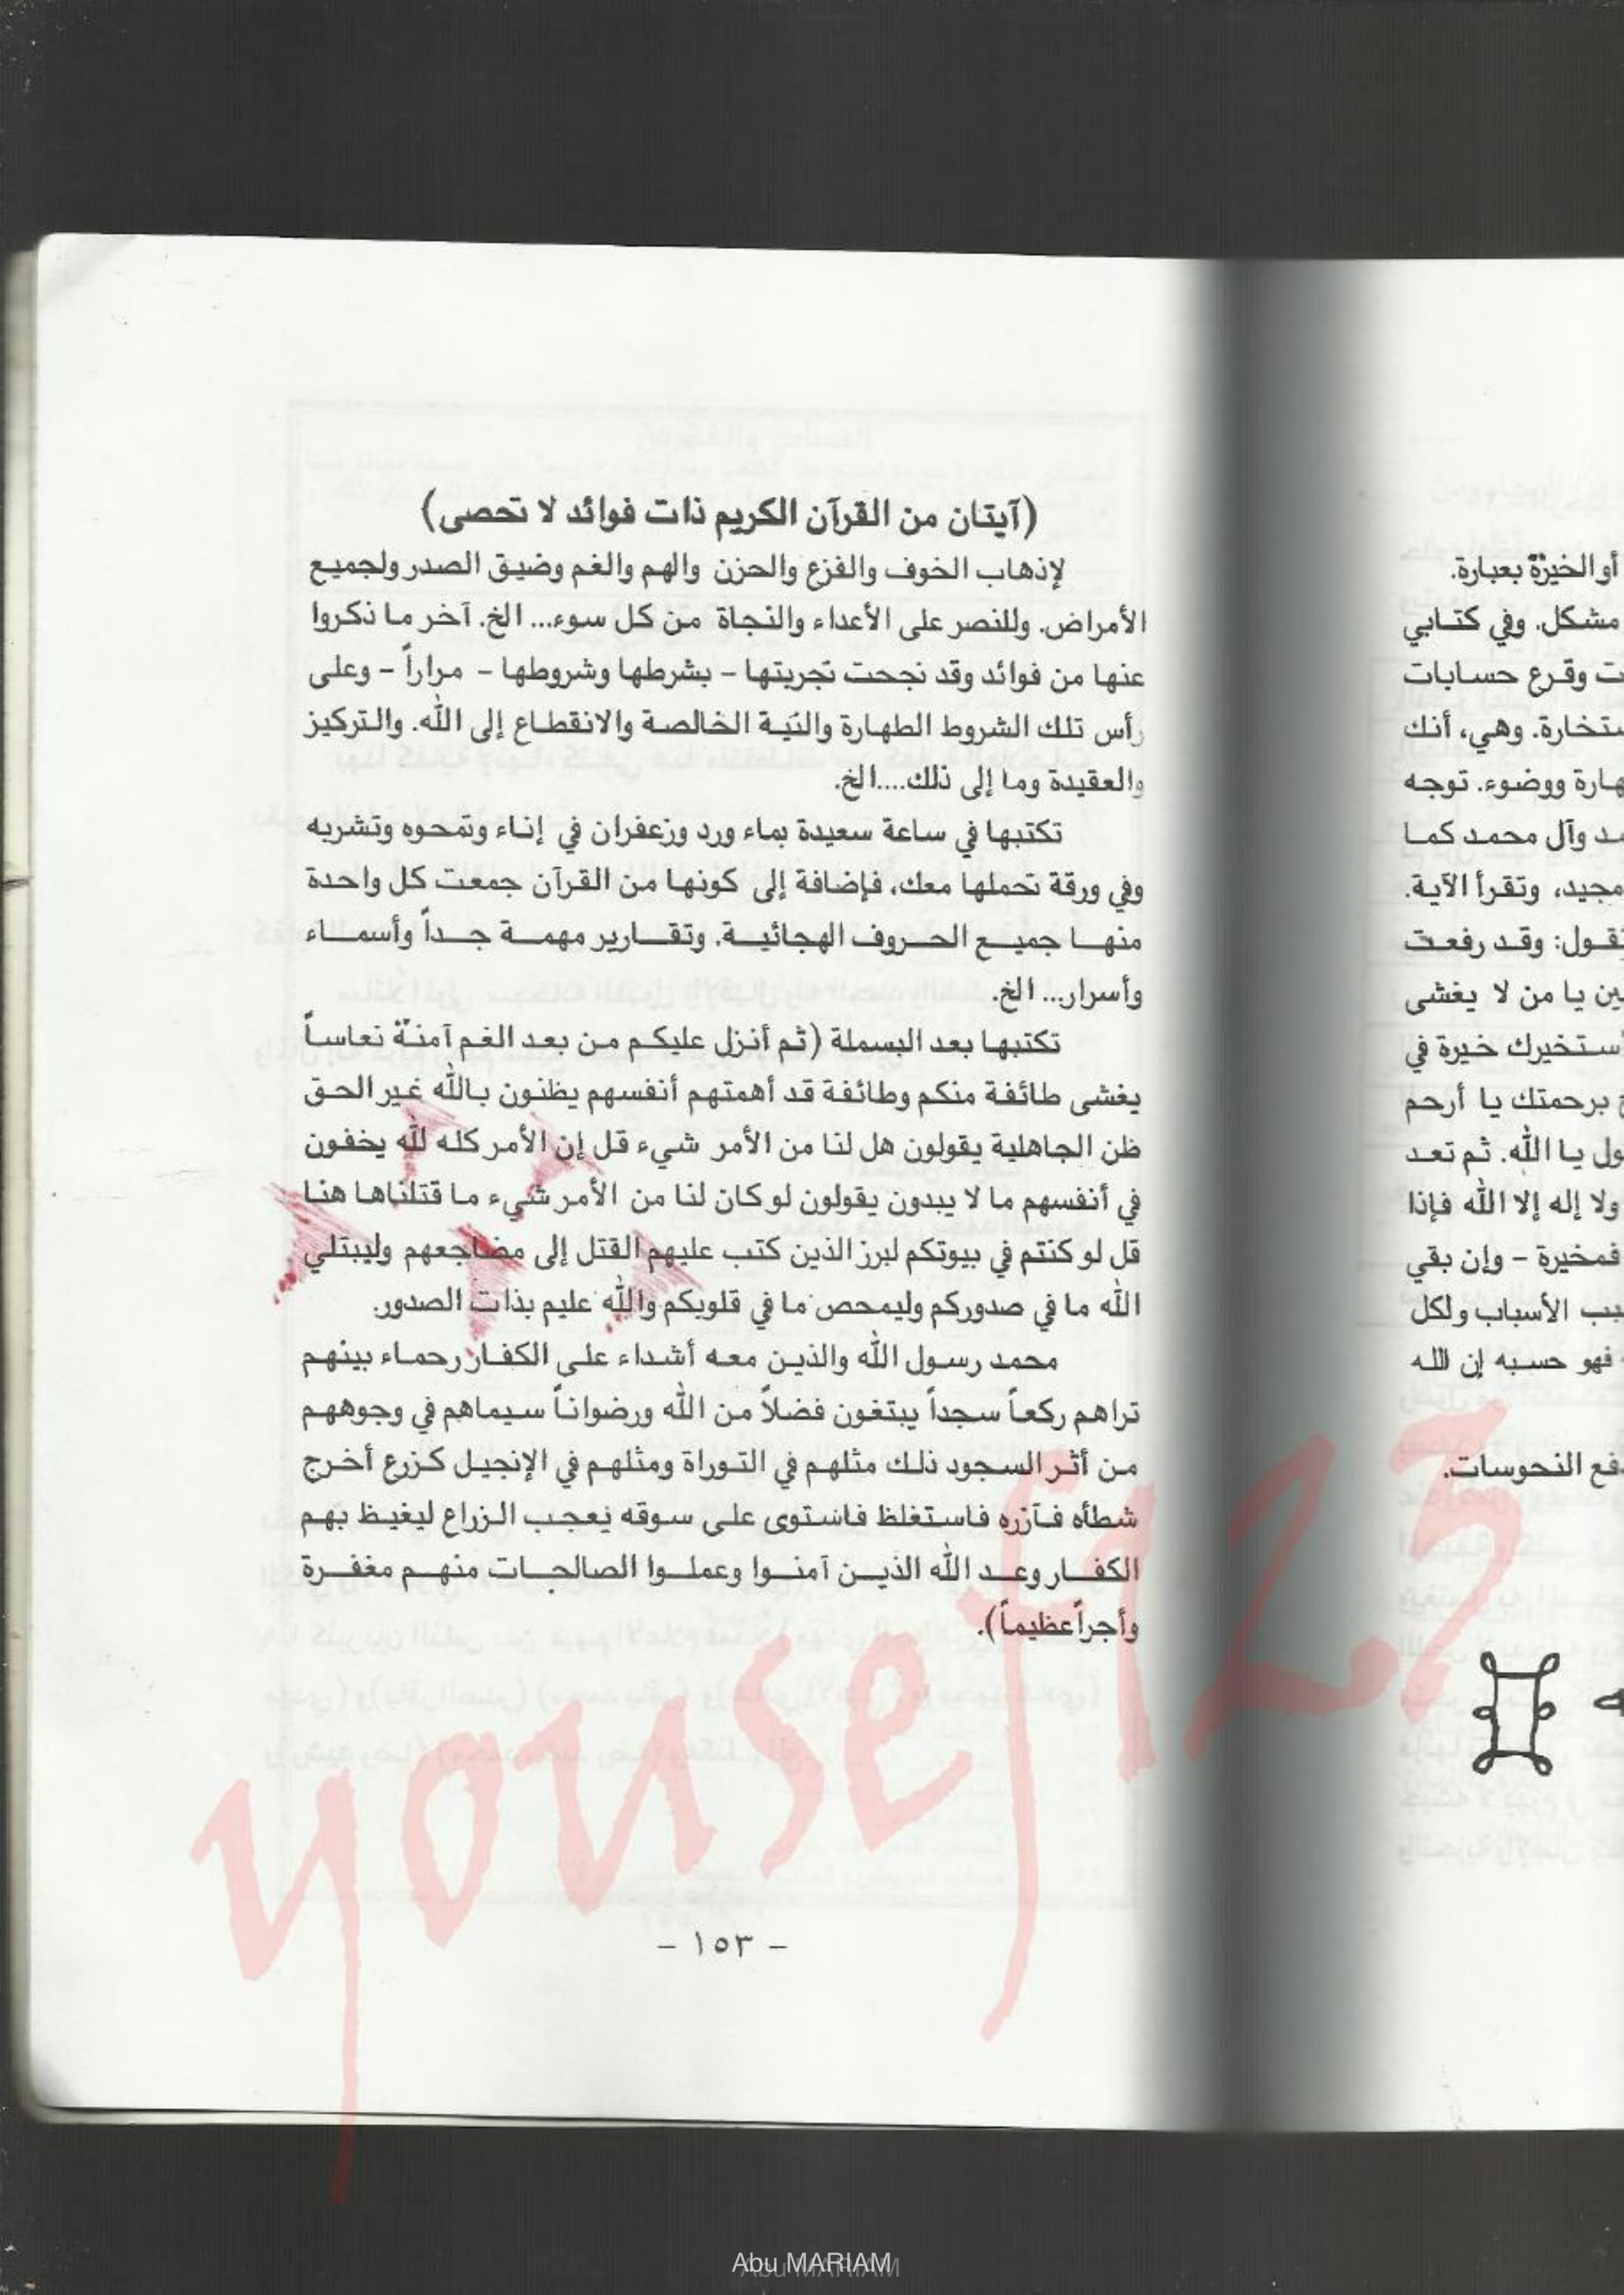 (آيتان من القرآن الكريم ذات فوائد لا تحصى)
لإذهاب الخوف والفزع والحزن والهم والغم وضيق الصدر ولجميع
الأمراض. وللنصر على الأعداء والنجاة من كل سوء... الخ. آخر ما ذكروا
عنها من فوائد وقد نجحت تجربتها - بشرطها وشروطها - مراراً - وعلى
رأس تلك الشروط الطهارة والنية الخالصة والانقطاع إلى الله. والتركيز
والعقيدة وما إلى ذلك....الخ.
تكتبها في ساعة سعيدة بماء ورد وزعفران في إناء وتمحوه وتشربه
وفي ورقة تحملها معك، فإضافة إلى كونها من القرآن جمعت كل واحدة
منها جميع الحروف الهجائية. وتقارير مهمة جداً وأسماء
وأسرار... الخ.
تكتبها بعد البسملة (ثم أنزل عليكم من بعد الغم آمنةً نعاساً
يغشى طائفة منكم وطائفة قد أهمتهم أنفسهم يظنون بالله غير الحق
ظن الجاهلية يقولون هل لنا من الأمر شيء قل إن الأمر كله لله يخفون
في أنفسهم ما لا يبدون يقولون لو كان لنا من الأمر شيء ما قتلناها هنا
قل لو كنتم في بيوتكم لبرز الذين كتب عليهم القتل إلى مضاجعهم وليبتلي
الله ما في صدوركم وليمحص ما في قلوبكم والله عليم بذات الصدور.
محمد رسول الله والذين معه أشداء على الكفار رحماء بينهم
تراهم ركعاً سجداً يبتغون فضلاً من الله ورضواناً سيماهم في وجوههم
من أثر السجود ذلك مثلهم في التوراة ومثلهم في الإنجيل كزرع أخرج
شطأه فآزره فاستغلظ فاستوى على سوقه يعجب الزراع ليغيظ بهم
الكفار وعد الله الذين آمنوا وعملوا الصالحات منهم مغفرة
وأجراً عظيماً).
- ١٥٣ -
أو الخيرة بعبارة.
مشكل. وفي كتابي
وقرع حسابات
ستخارة. وهي، أنك
هارة ووضوء. توجه
وآل محمد كما
مجيد، وتقرأ الآية.
تقول: وقد رفعت
يا من لا يغشى
أستخيرك خيرة في
برحمتك يا أرحم
يا الله. ثم تعد
ولا إله إلا الله فإذا
فمخيرة - وإن بقي
الأسباب ولكل
فهو حسبه إن الله
النحوسات.
yousef123
Abu MARIAM